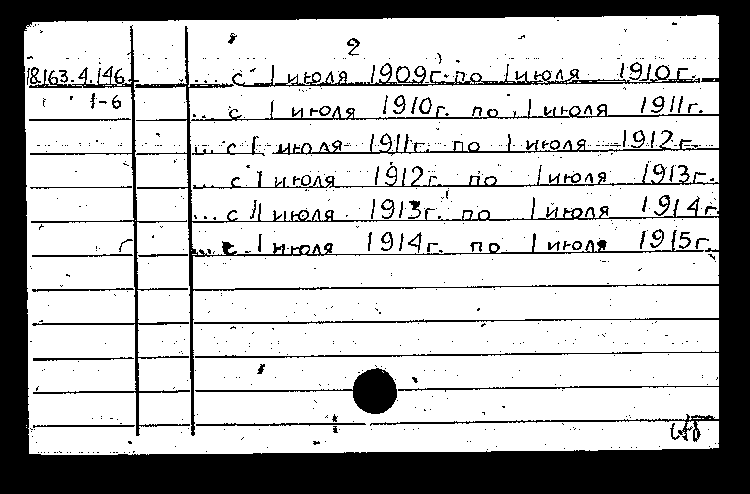 2
18163.4.146 ... с 1 июля 1909г. по 1 июля 1910г.
1-6 ... с 1 июля 1910г. по 1 июля 1911г.
... с 1 июля 1911г. по 1 июля 1912г.
... с 1 июля 1912г. по 1 июля 1913г.
... с 1 июля 1913г. по 1 июля 1914г.
... с 1 июля 1914г. по 1 июля 1915г.